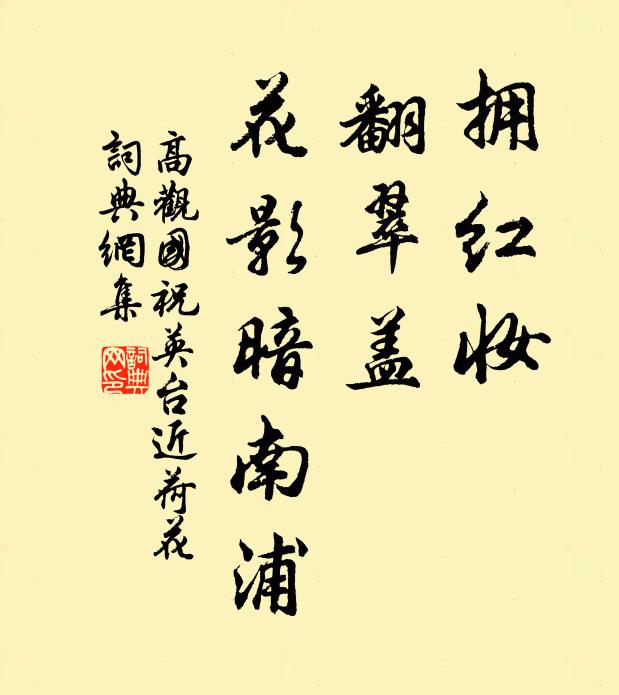 拥红妆
翻翠盖
花影暗南浦
高觀國祝英台近荷花
詞典網集
詞典
网印